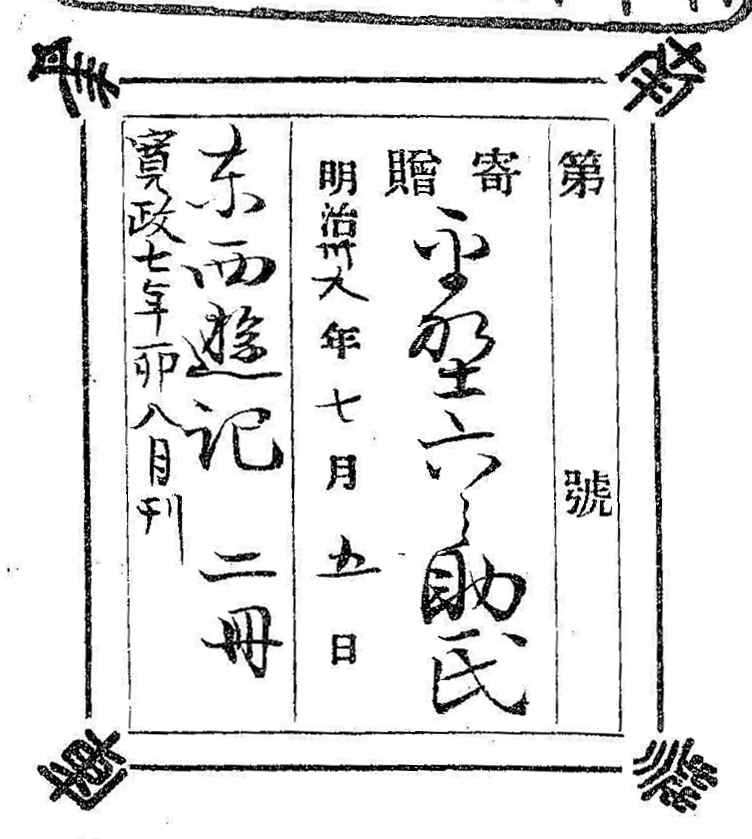 第 號
寄贈
平野六之助氏
明治卅九年七月五日
東西遊記 二冊
寛政七年卯八月刊